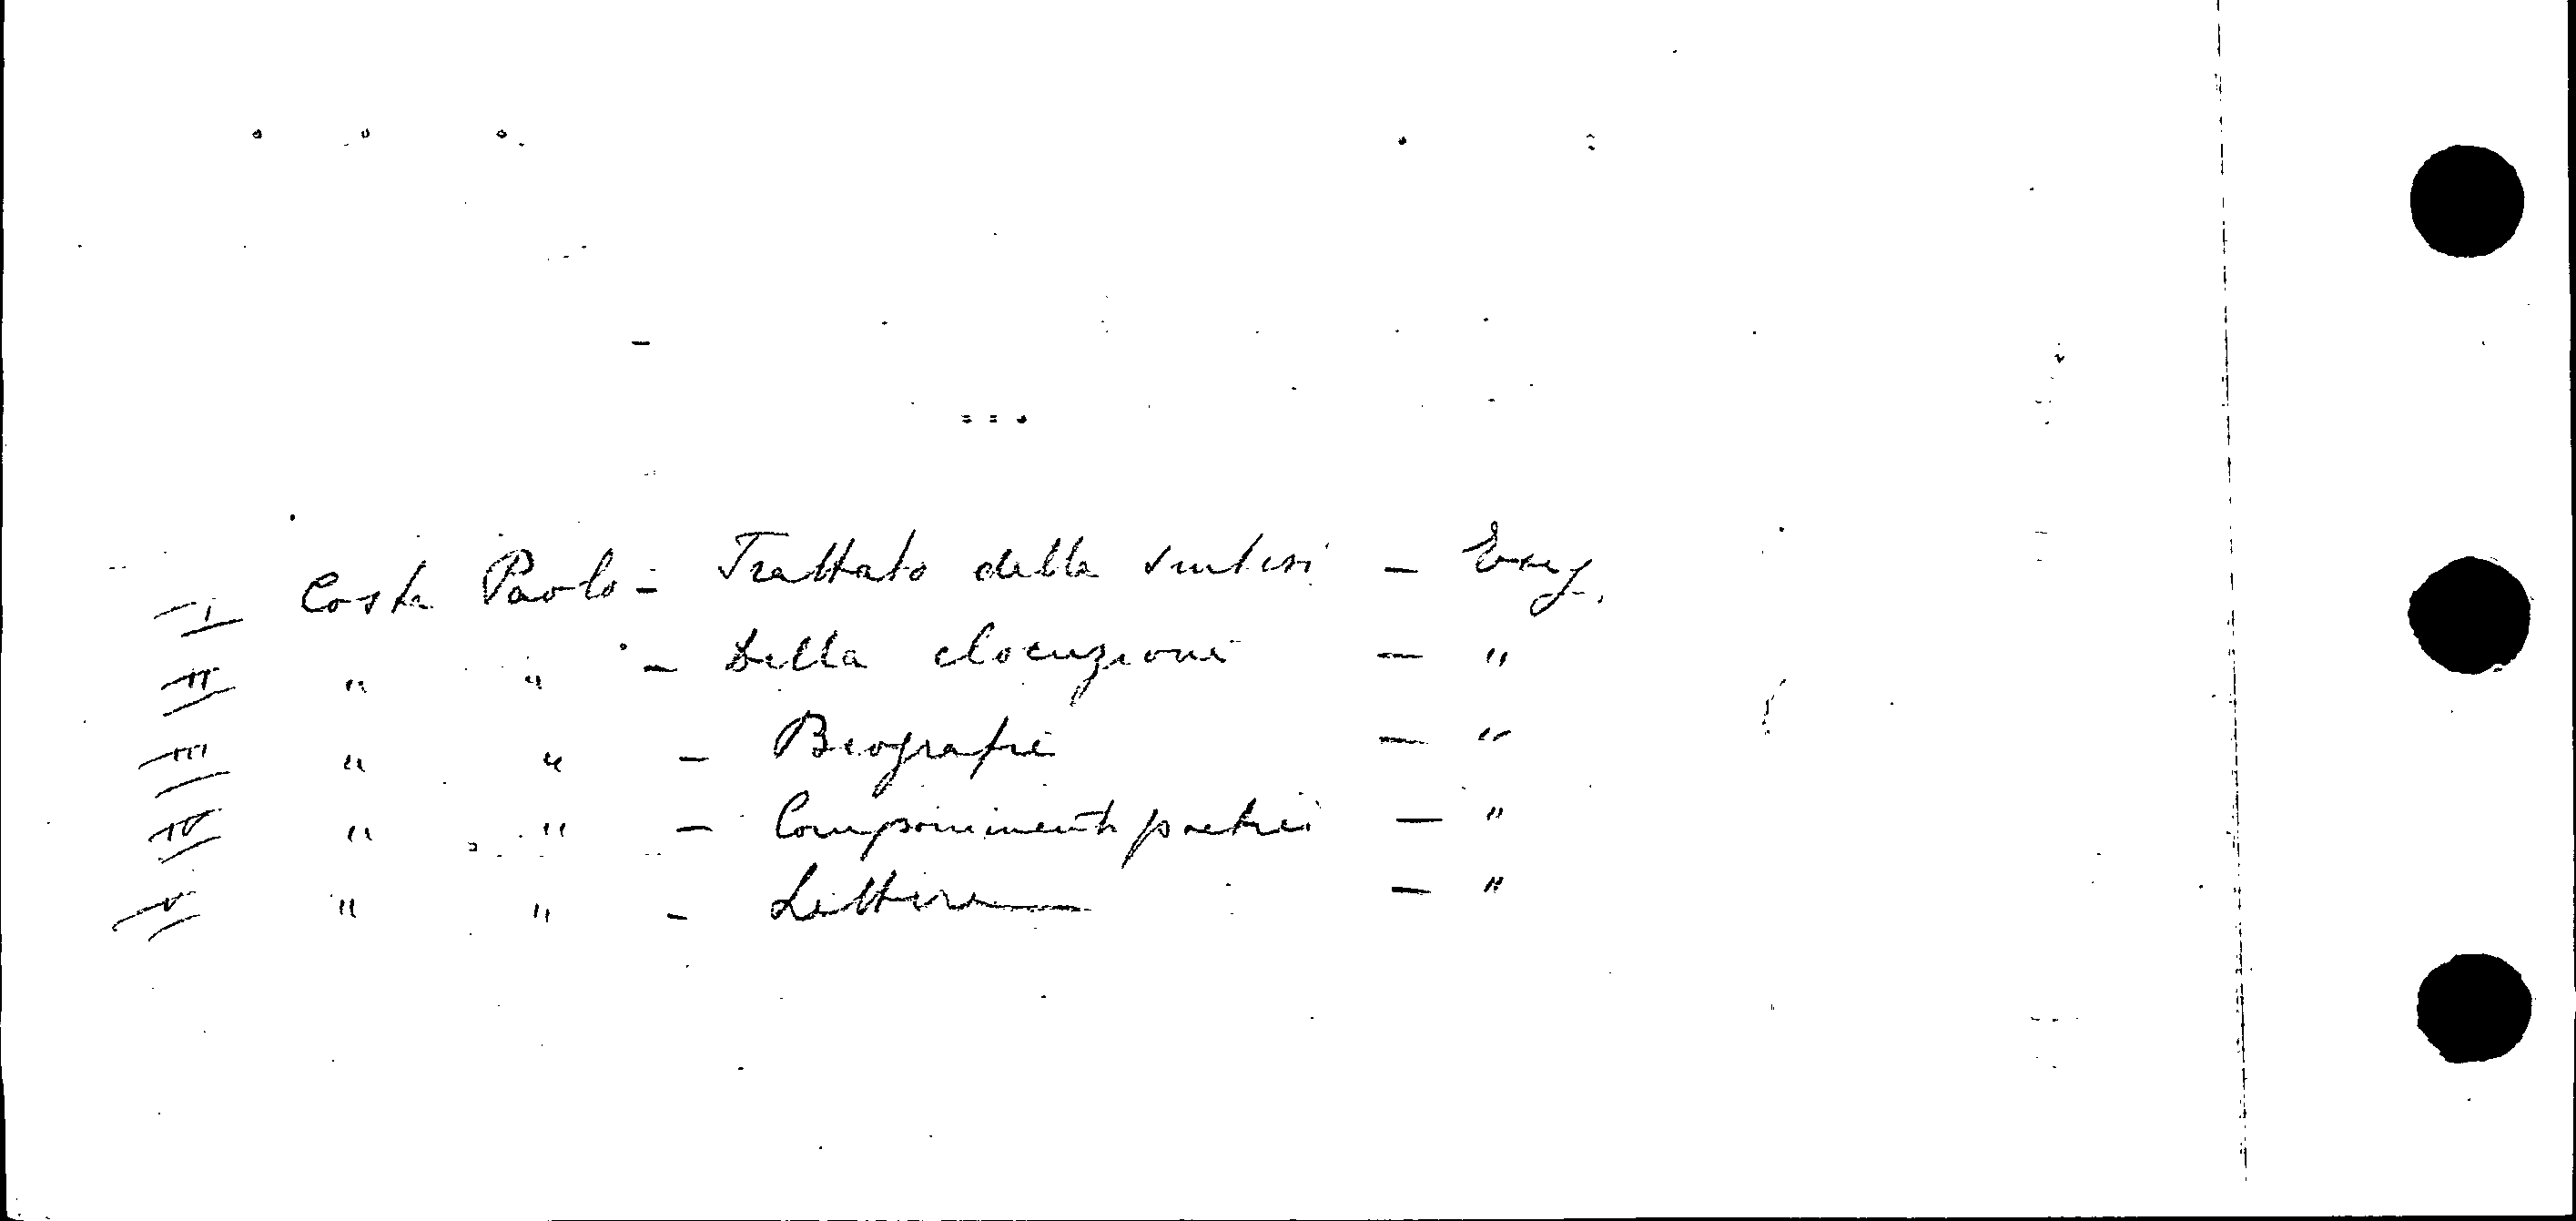 I Costa Paolo - Trattato della sintesi -
II " " - Della elocuzione - "
III " " - Biografie - "
IV " " - Componimenti poetici - "
V " " - Lettere - "